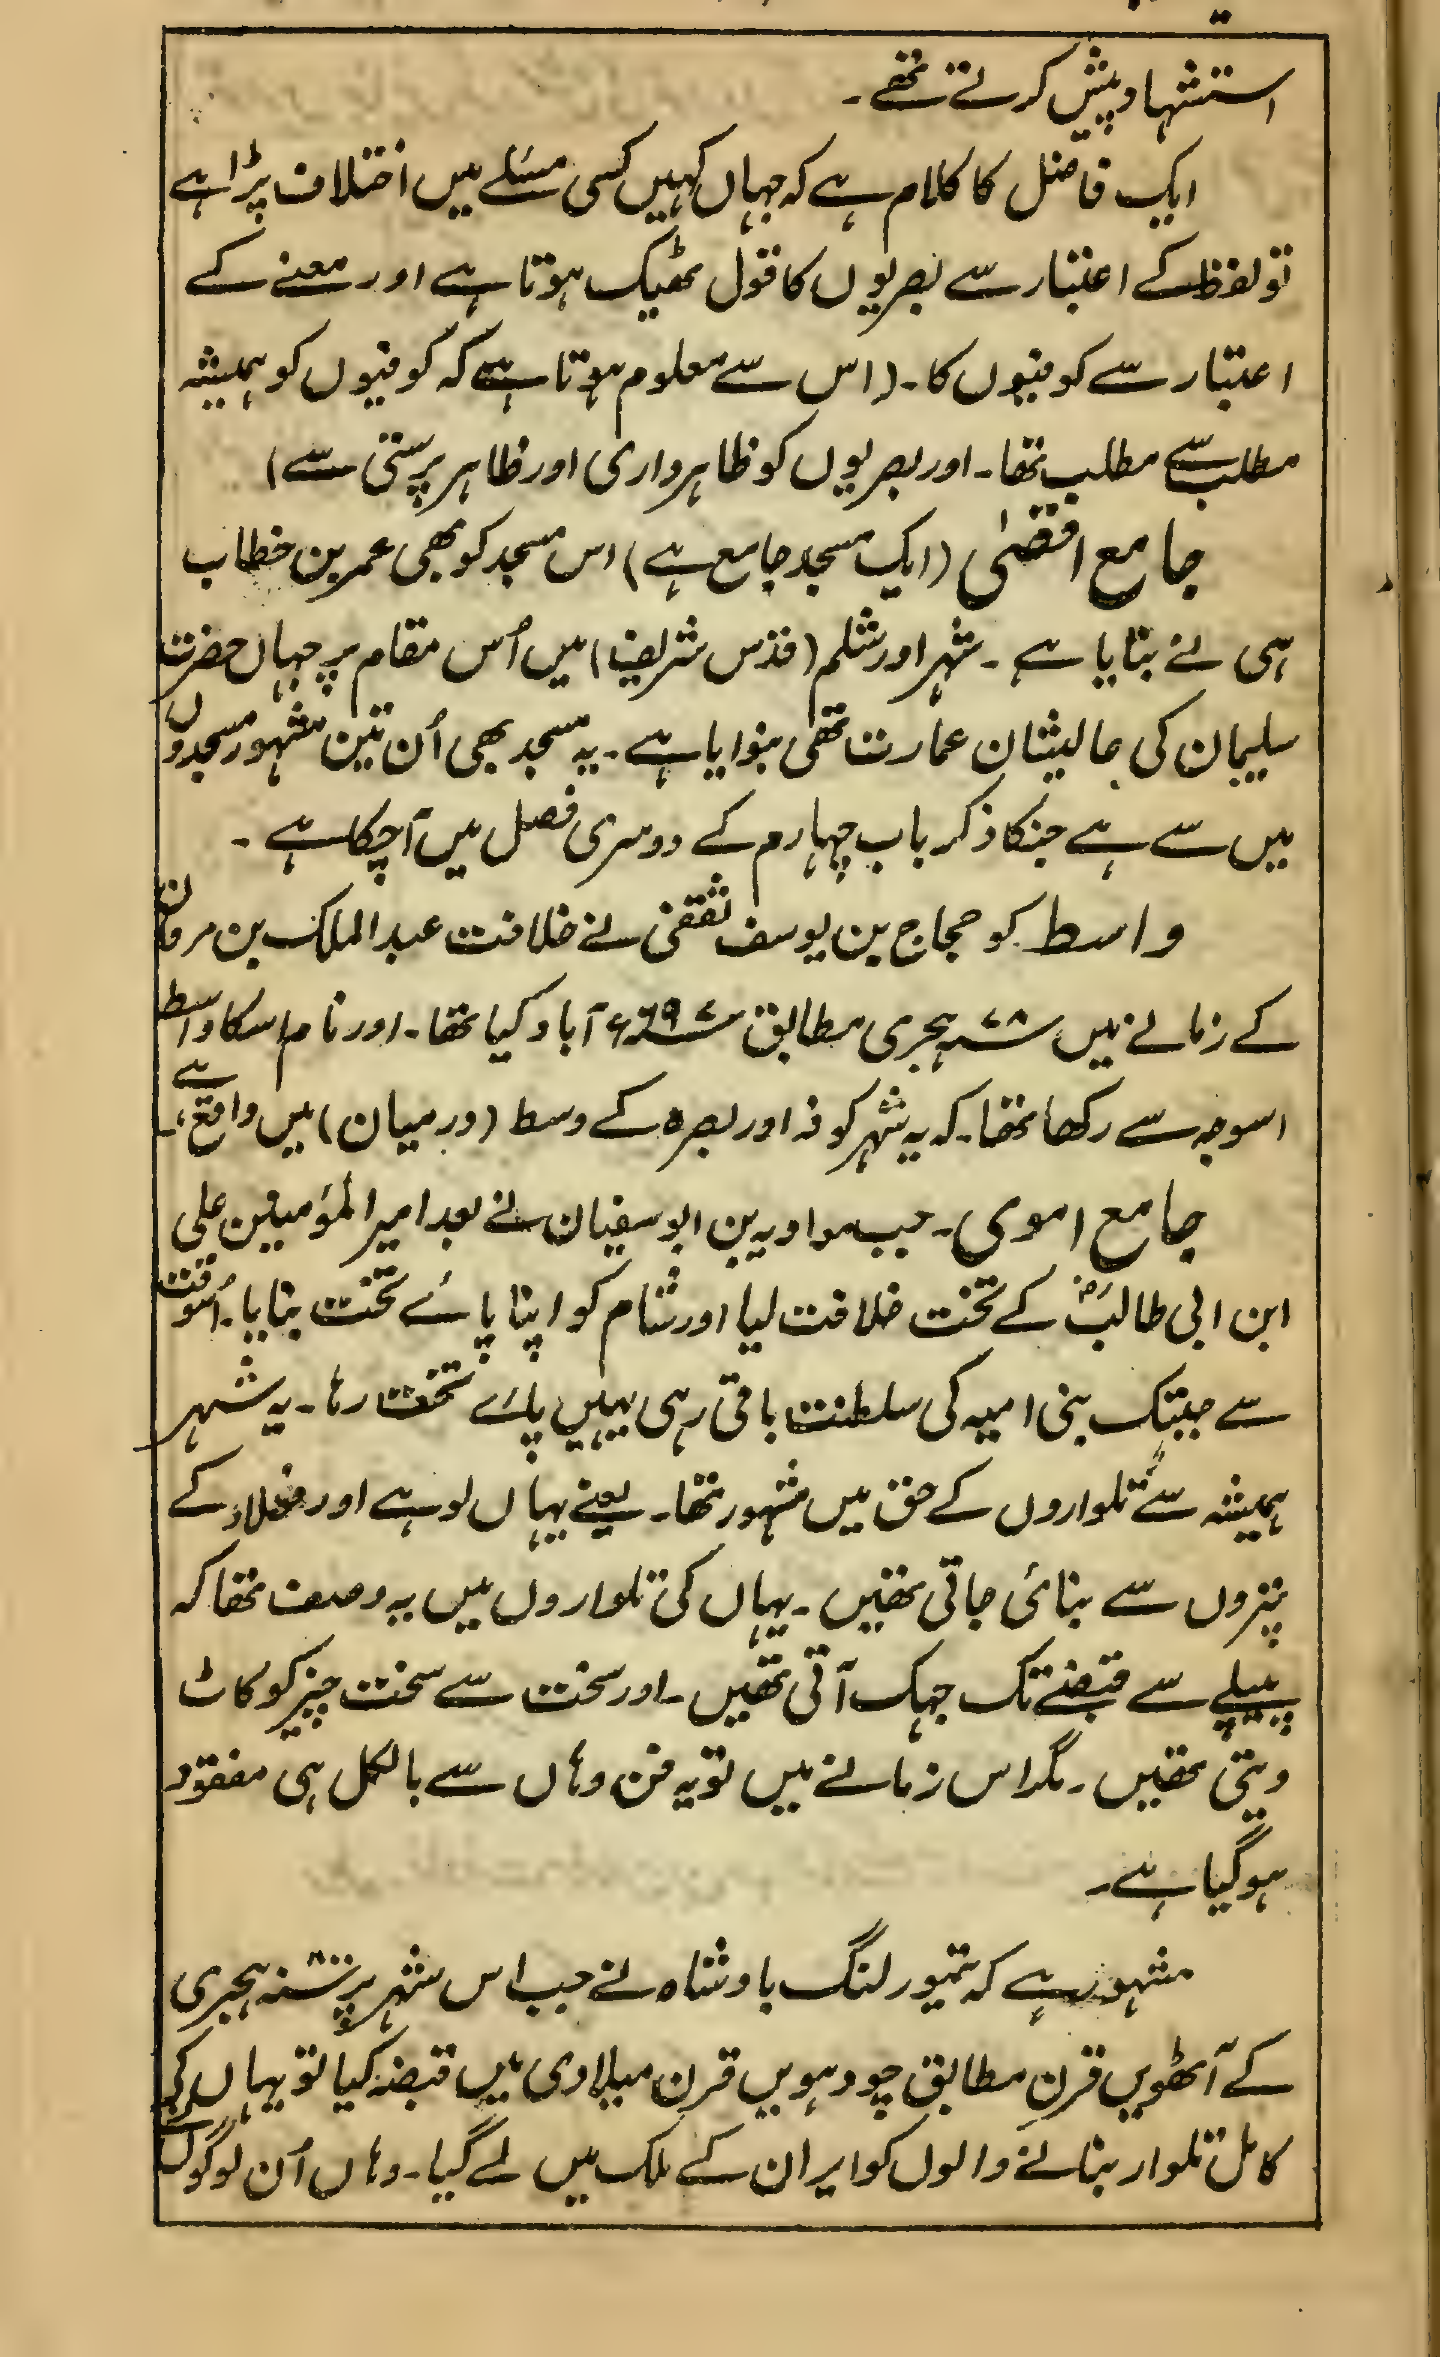 استشہاد پیش کرتے تھے۔
ایک فاضل کا کلام ہے کہ جہاں کہیں کسی مسئلے میں اختلاف پڑا ہے
تو لفظ کے اعتبار سے بصریوں کا قول ٹھیک ہوتا ہے اور معنے کے
اعتبار سے کوفیوں کا۔ (اس سے معلوم ہوتا ہے کہ کوفیوں کو ہمیشہ
مطلب سے مطلب تھا۔ اور بصریوں کو ظاہرواری اور ظاہر پرستی سے)
جامع اقصیٰ (ایک مسجد جامع ہے) اس مسجد کو بھی عمر بن خطاب
ہی نے بنایا ہے۔ شہر اورشلم (قدس شریف) میں اُس مقام پر جہاں حضرت
سلیمان کی عالیشان عمارت تھی بنوایا ہے۔ یہ مسجد بھی اُن تین مشہور مسجدوں
میں سے ہے جنکا ذکر باب چہارم کے دوسری فصل میں آچکا ہے۔
واسط کو حجاج بن یوسف ثقفی نے خلافت عبد الملک بن مروان
کے زمانے میں ۷۸ ہجری مطابق ۶۹۷ء آباد کیا تھا۔ اور نام اسکا واسط
اسوجہ سے رکھا تھا۔ کہ یہ شہر کوفہ اور بصرہ کے وسط (درمیان) میں واقع ہے۔
جامع اموی۔ جب معاویہ بن ابوسفیان نے بعد امیر المؤمنین علی
ابن ابی طالبؓ کے تخت خلافت لیا اور شام کو اپنا پائے تخت بنایا۔ اُسوقت
سے جبتک بنی امیہ کی سلطنت باقی رہی یہیں پائے تخت رہا۔ یہ شہر
ہمیشہ سے تلواروں کے حق میں مشہور تھا۔ یعنے یہاں لوہے اور فولاد کے
پتروں سے بنائی جاتی تھیں۔ یہاں کی تلواروں میں یہ وصف تھا کہ
پیپلے سے قبضے تک جہک آتی تھیں۔ اور سخت سے سخت چیز کو کاٹ
دیتی تھیں۔ مگر اس زمانے میں تو یہ فن وہاں سے بالکل ہی مفقود
ہو گیا ہے۔
مشہور ہے کہ تیمور لنگ بادشاہ نے جب اس شہر پر ہجری
کے آٹھویں قرن مطابق چودہویں قرن میلادی میں قبضہ کیا تو یہاں کے
کامل تلوار بنانے والوں کو ایران کے ملک میں لے گیا۔ وہاں اُن لوگوں نے